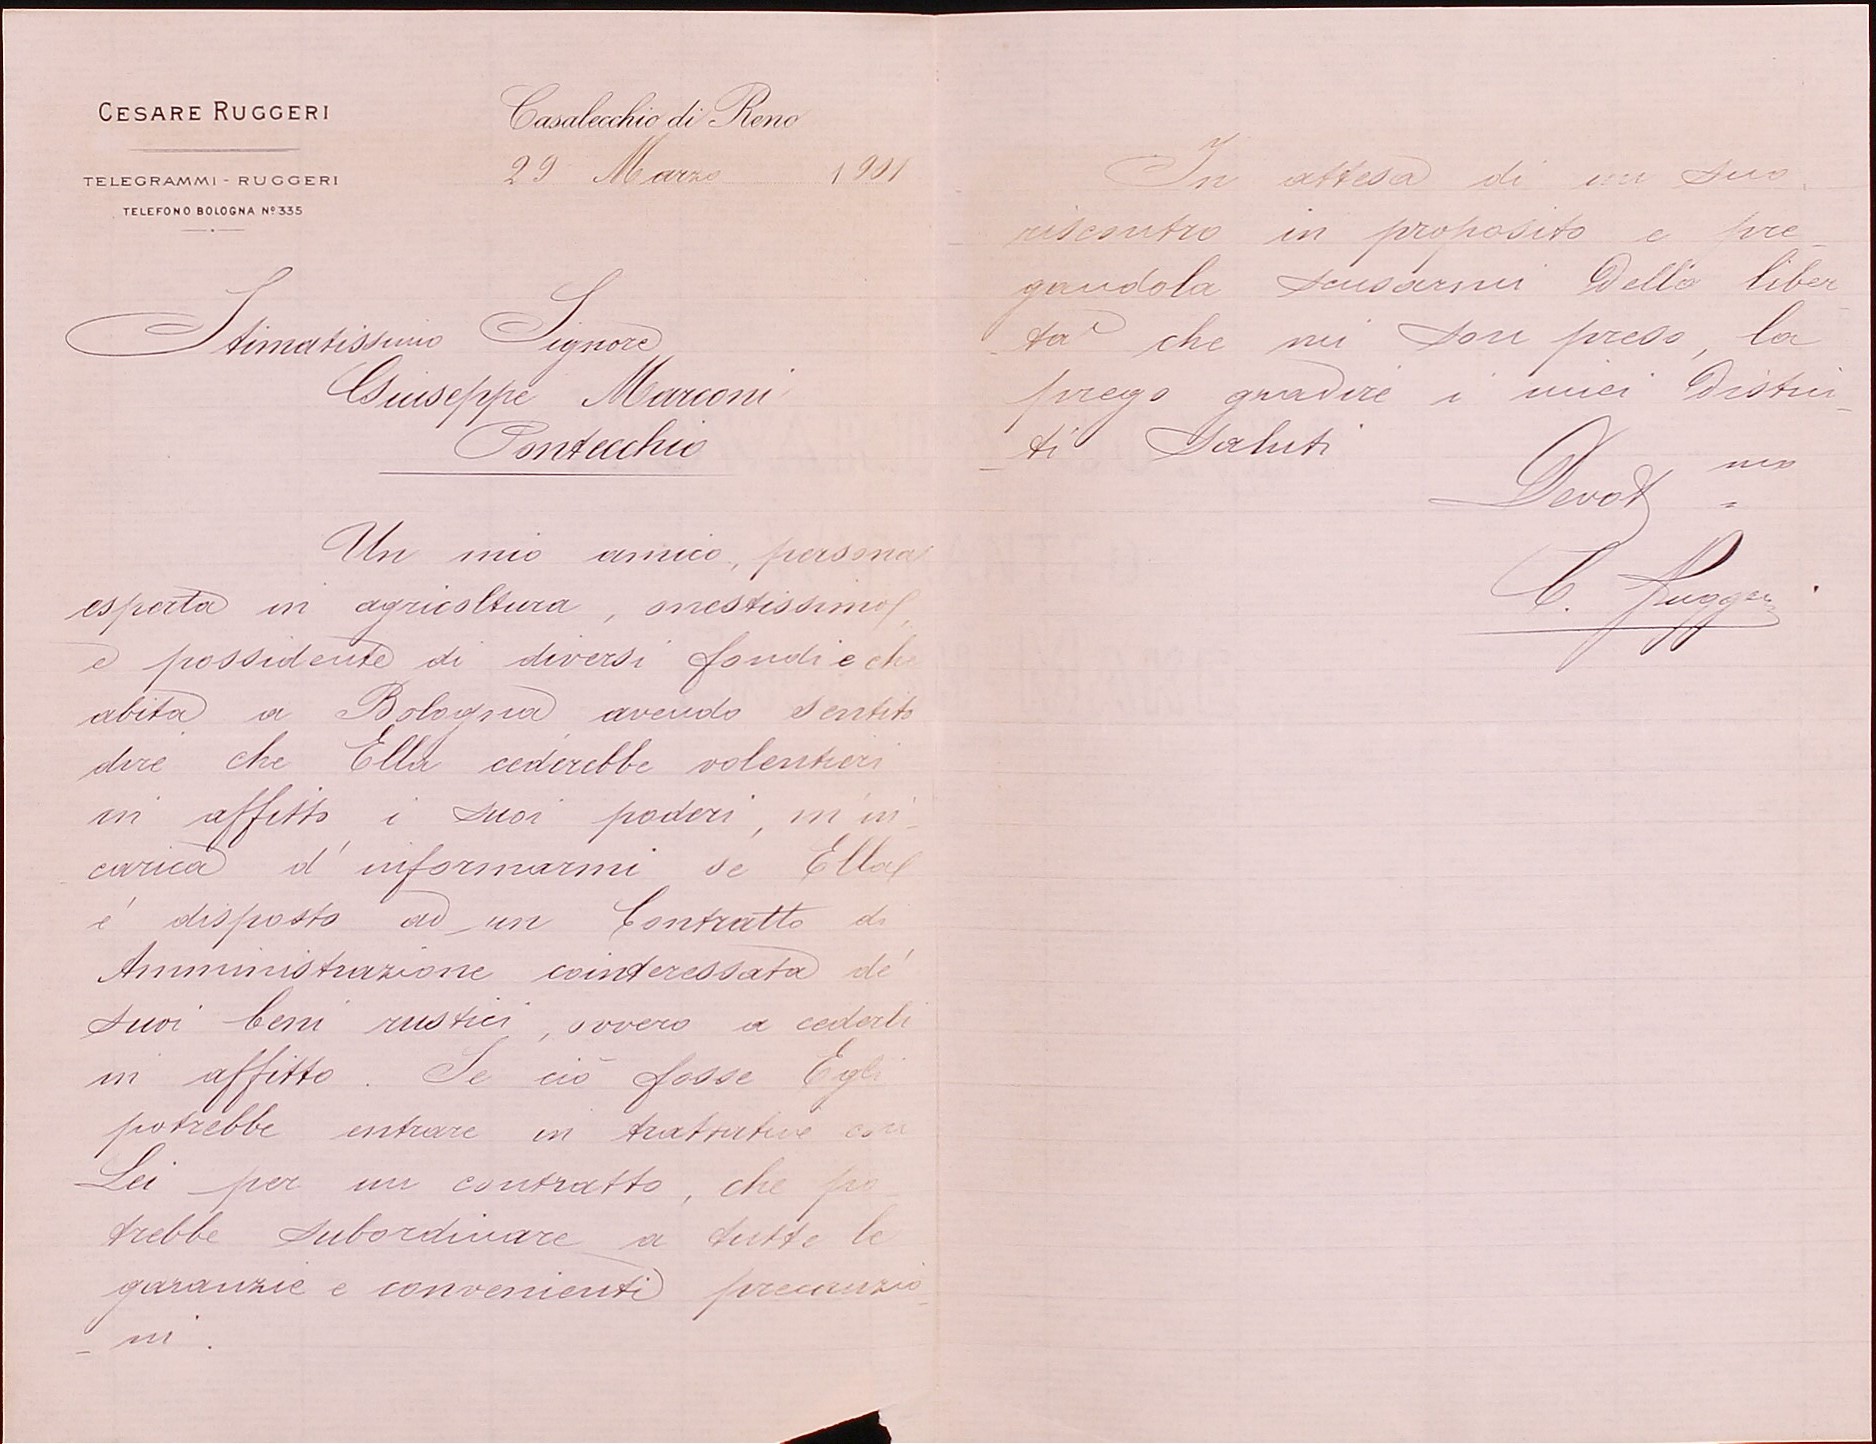 CESARE RUGGERI
TELEGRAMMI - RUGGERI
TELEFONO BOLOGNA Nº 335
Casalecchio di Reno
29 Marzo 1901
Stimatissimo Signore
Giuseppe Marconi
Pontecchio
Un mio amico, persona
esperta in agricoltura, onestissimo,
e possidente di diversi fondi e che
abita a Bologna avendo sentito
dire che Ella cederebbe volentieri
in affitto i suoi poderi, m'in-
carica d'informarmi se Ella
e' disposto ad un Contratto di
Amministrazione cointeressata de'
suoi beni rustici, ovvero a cederli
in affitto. Se ciò fosse Egli
potrebbe entrare in trattative con
Lei per un contratto, che po-
trebbe subordinare a tutte le
garanzie e convenienti precauzio-
ni.
In attesa di un suo
riscontro in proposito e pre-
gandola scusarmi della liber-
tà che mi son preso, la
prego gradire i miei distin-
ti saluti
Devot mo
C. Ruggeri